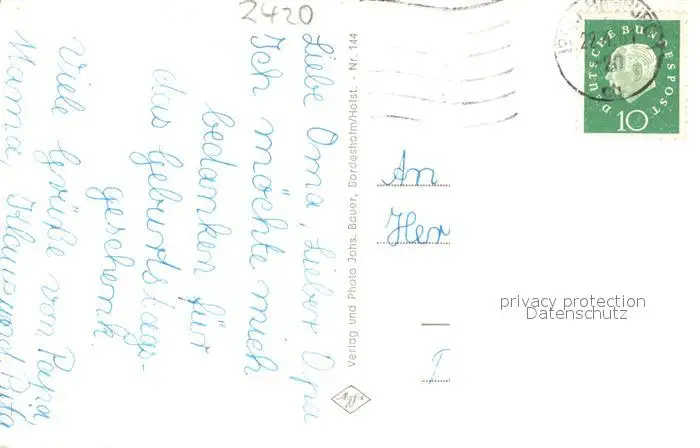 2420
Liebe Oma, Lieber Opa
Ich möchte mich
bedanken für
das Geburtstags-
geschenk.
Viele Grüße von Papa,
Mama, Klaus und Rita
Verlag und Photo Johs. Bauer, Bordesholm/Holst. - Nr. 144
Agfa
DEUTSCHE BUNDESPOST
10
An
Her
privacy protection
Datenschutz